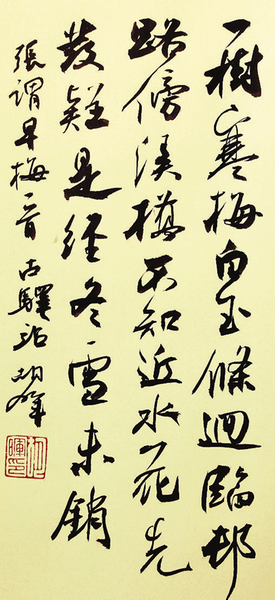 一樹寒梅白玉條迴臨邨
路傍溪橋不知近水花先
發疑是經冬雪未銷
張謂早梅一首古驛站